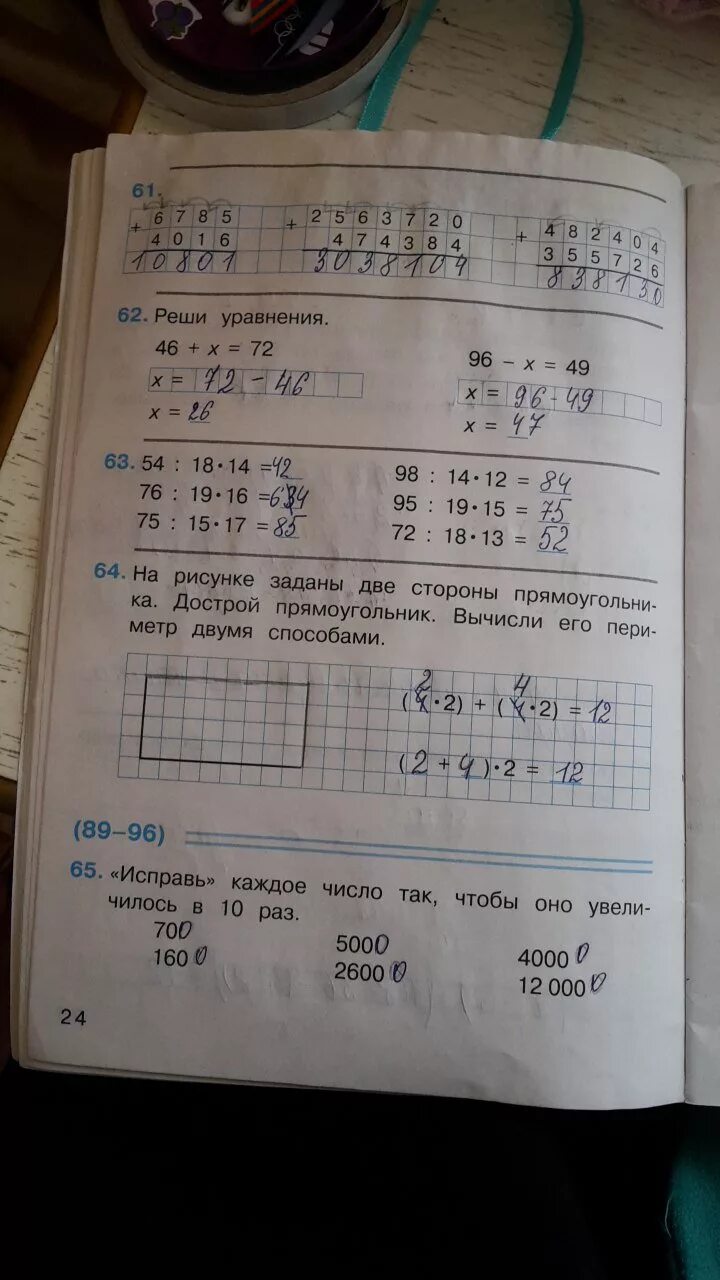 61.
+ 6785 + 2563720 + 482404
4016 474384 355726
10801 3038104 838130
62. Реши уравнения.
46 + x = 72 96 − x = 49
x = 72 − 46 x = 96 - 49
x = 26 x = 47
63. 54 : 18 · 14 = 42 98 : 14 · 12 = 84
76 : 19 · 16 = 64 95 : 19 · 15 = 75
75 : 15 · 17 = 85 72 : 18 · 13 = 52
64. На рисунке заданы две стороны прямоугольни-
ка. Дострой прямоугольник. Вычисли его пери-
метр двумя способами.
2 4
( · 2) + ( · 2) = 12
(2 + 4) · 2 = 12
(89–96)
65. «Исправь» каждое число так, чтобы оно увели-
чилось в 10 раз.
700 5000 40000
1600 26000 12 0000
24